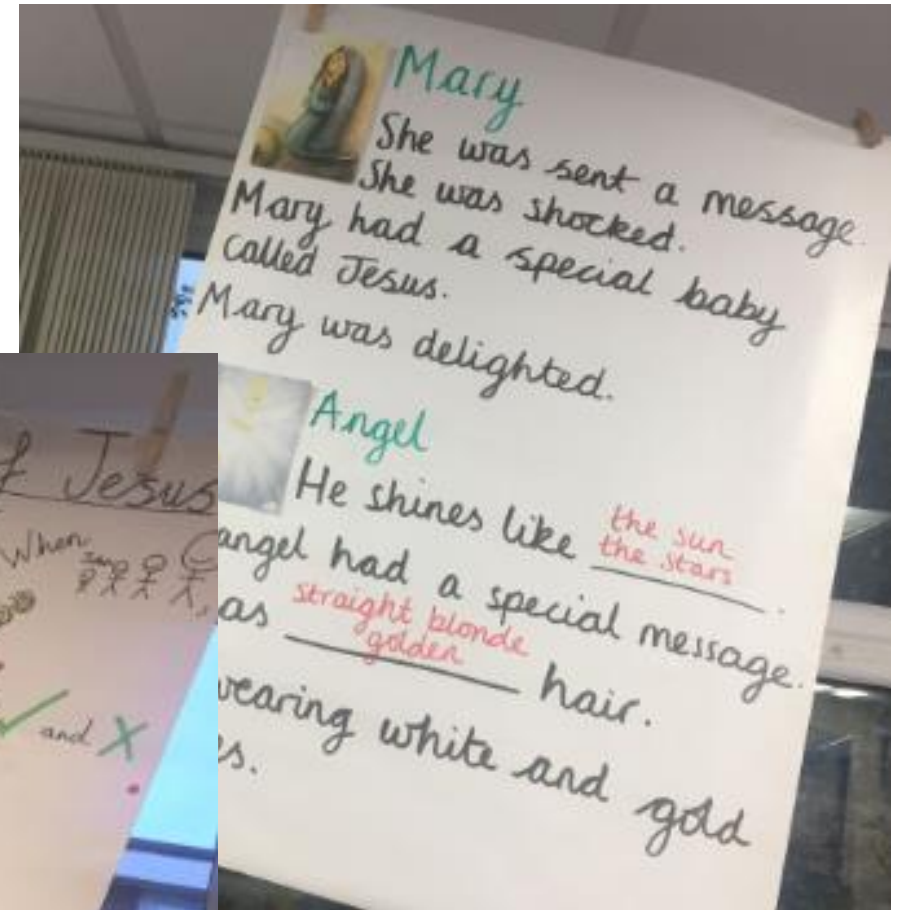 Mary
She was sent a message.
She was shocked.
Mary had a special baby
called Jesus.
Mary was delighted.
Angel
He shines like the sun
the stars.
angel had a special message.
as straight blonde
golden hair.
wearing white and gold
s.
Jesus
When
and